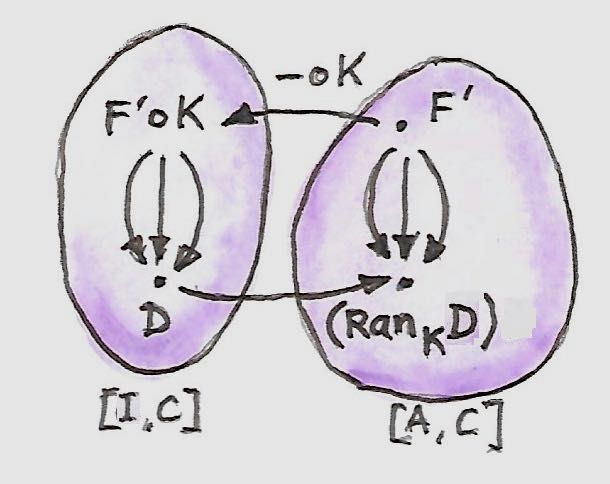 –∘K
F'∘K
F'
D
(Ran_K D)
[I,C]
[A,C]